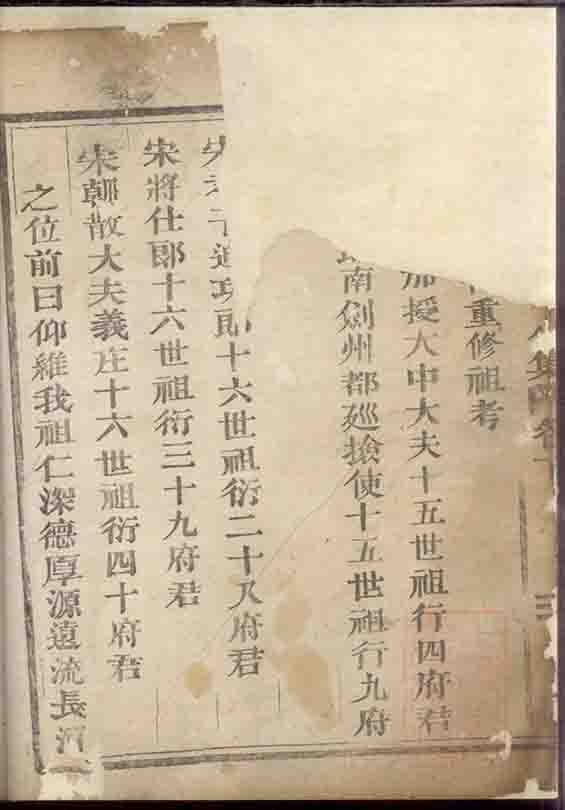 重修祖考
加授大中大夫十五世祖行四府君
南劍州都廵撿使十五世祖行九府
十六世祖衍二十又府君
宋將仕郎十六世祖衍三十九府君
宋朝散大夫義庄十六世祖衍四十府君
之位前曰仰維我祖仁深德厚源遠流長